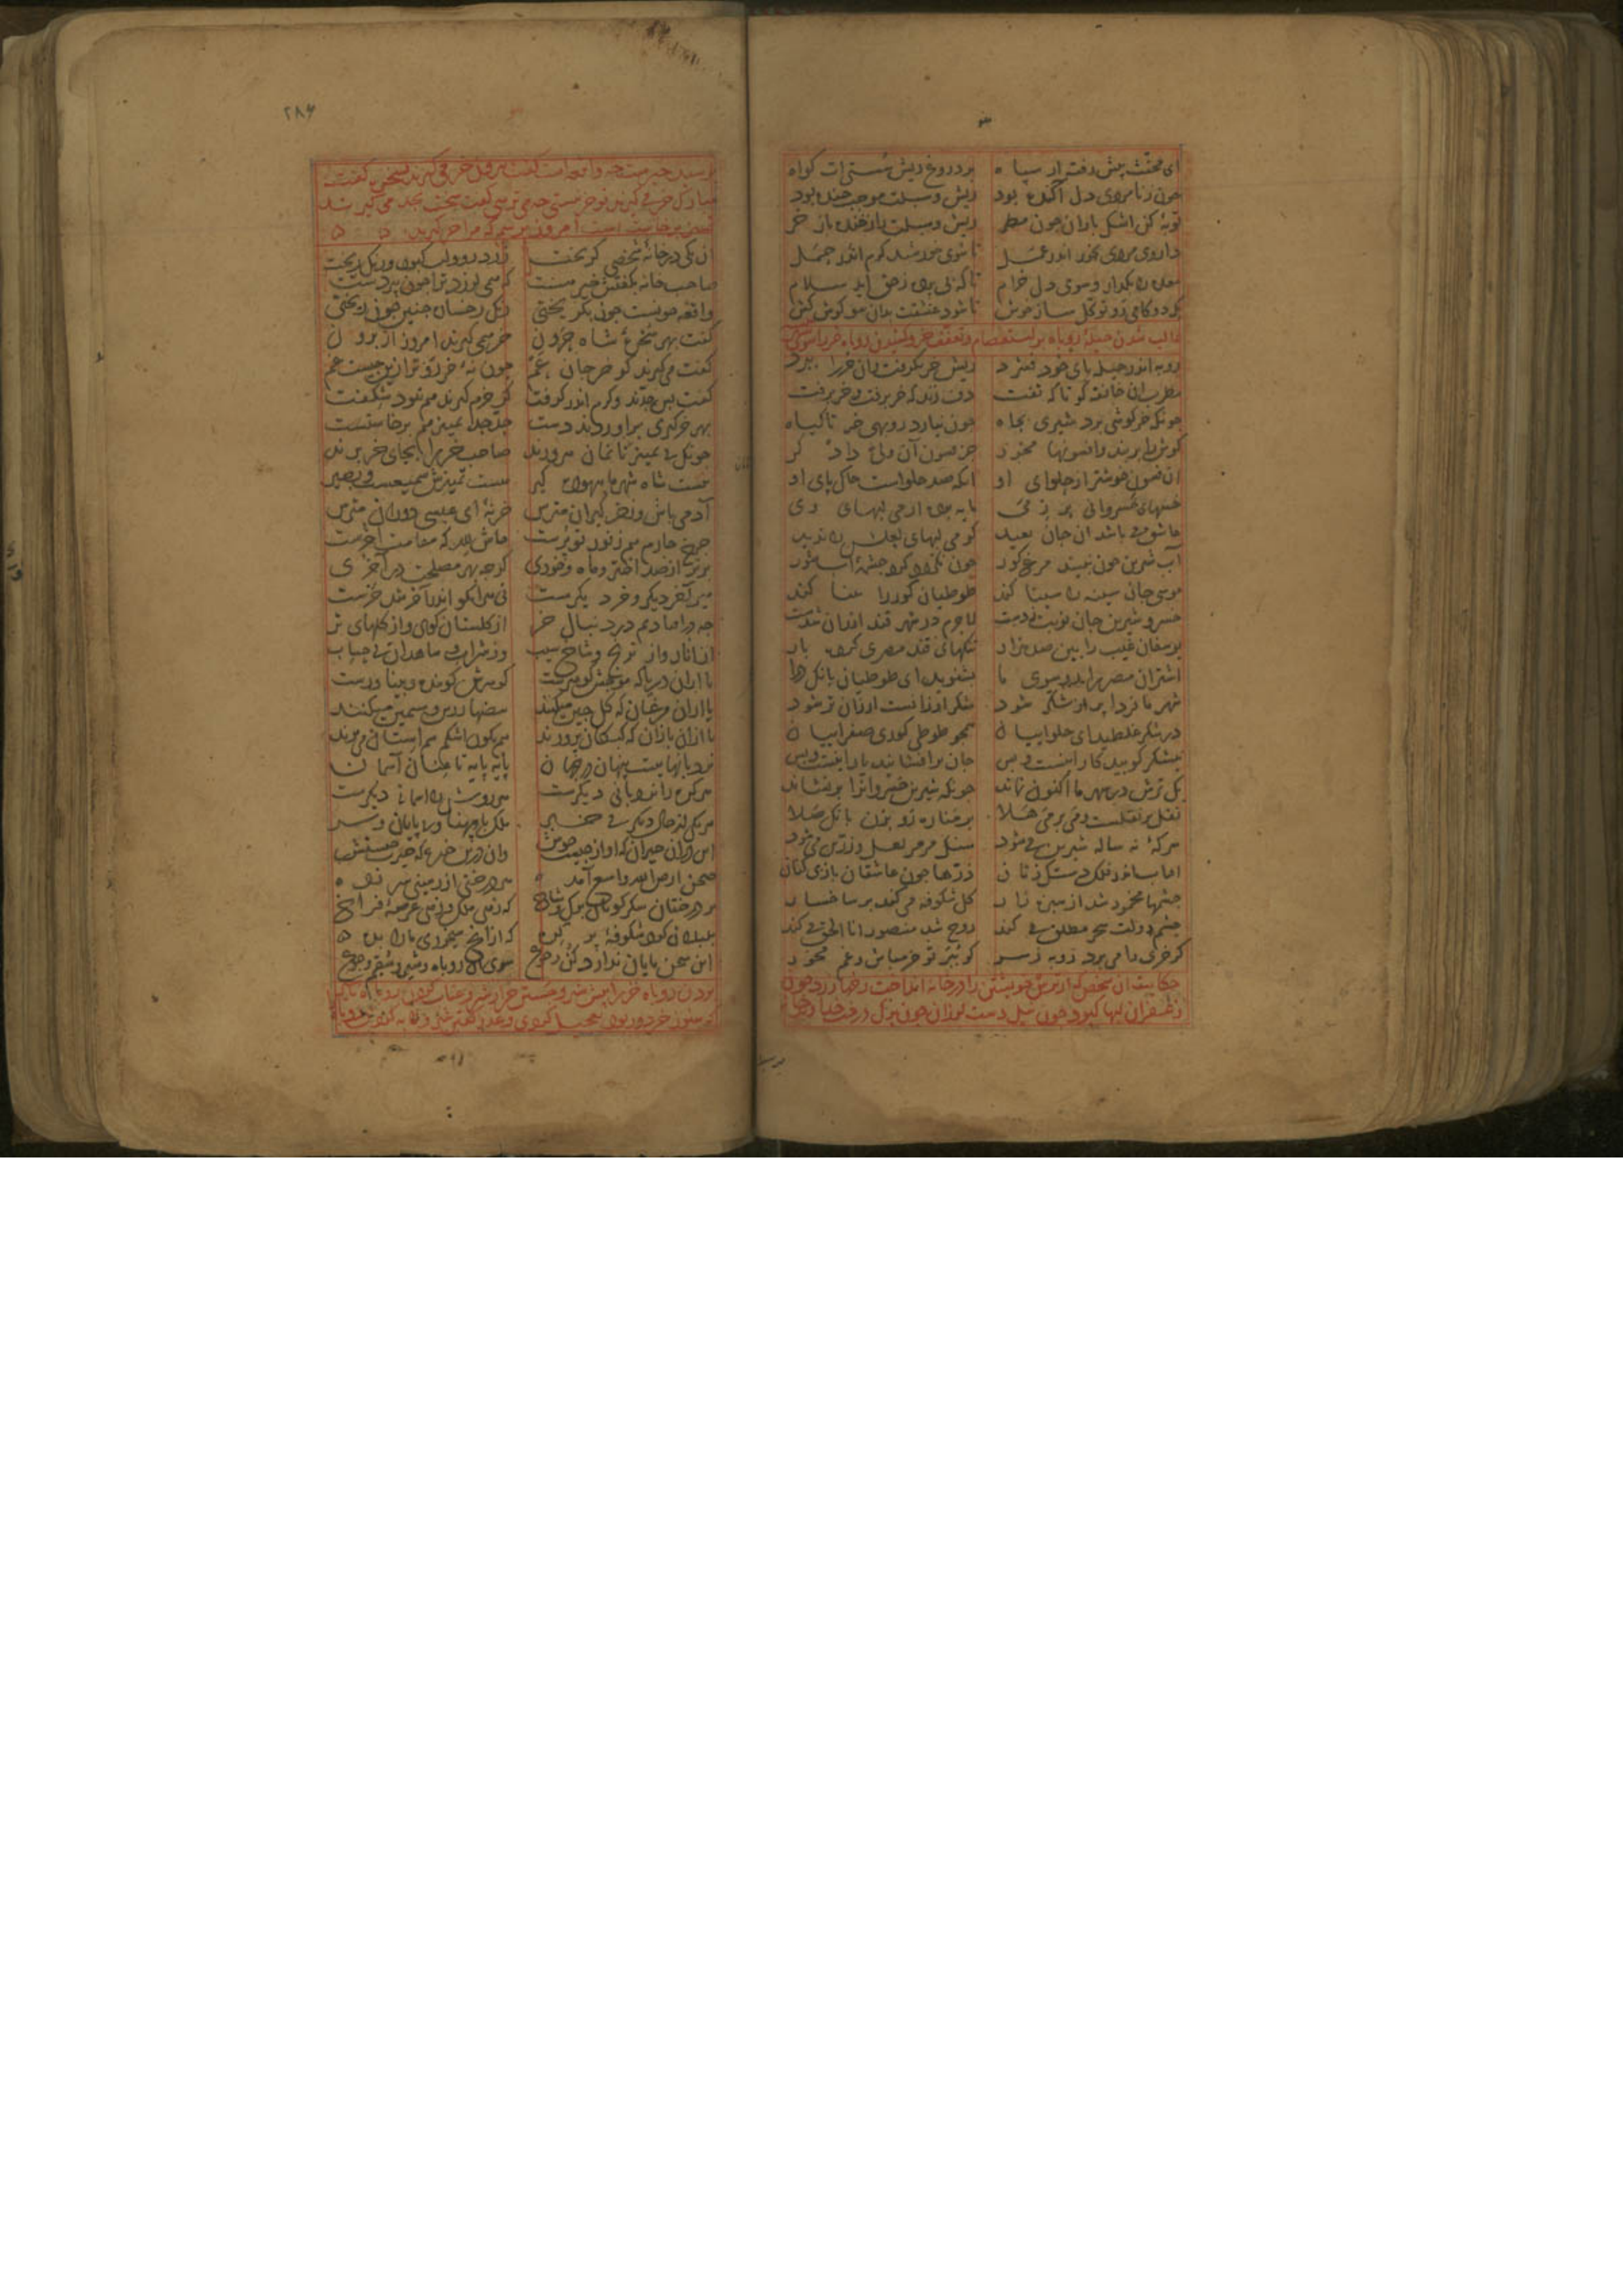 ای مخنث پیش رفته از سپاه بر دروغ ریش تو کیرت گواه
چون ز نامردی دل آکنده بود ریش و سبلت موجب خنده بود
توبه کن اشک باران چون مطر ریش و سبلت را ز خنده باز خر
داروی مردی بخور اندر عمل تا شوی خورشید گرم اندر حمل
معده را بگذار و سوی دل خرام تا که بی پرده ز حق آید سلام
یک دو گامی رو توکل ساز خوش تا شود عشقت بدان مو گوش کش
غالب شدن حیله روباه بر استعصام و تعفف خر و کشیدن روباه خر را سوی
روبه اندر حیله پای خود فشرد ریش خر بگرفت و آن خر را ببرد
مطرب آن خانقه کو تا که تفت دف زند که خر برفت و خر برفت
چونکه خرگوشی برد شیری بجاه چون نیارد روبهی خر تا گیاه
گوش را بر بند و افسونها مخور جز فسون آن ولی دادگر
آن فسون خوشتر از حلوای او آنکه صد حلواست خاک پای او
خنبهای خسروانی پر ز می مایه برده از می لبهای وی
عاشق می باشد آن جان بعید کو می لبهای لعلش را ندید
آب شیرین چون نبیند مرغ کور چون نگردد گرد چشمه آب شور
موسی جان سینه را سینا کند طوطیان کور را بینا کند
خسرو شیرین جان نوبت زدست لاجرم در شهر قند ارزان شدست
یوسفان غیب را بین صد هزار تنگهای قند مصری کرده بار
اشتران مصر را رو سوی ما بشنوید ای طوطیان بانگ درا
شهر ما فردا پر از شکر شود شکر ارزانست ارزان تر شود
در شکر غلطید ای حلواییان همچو طوطی کوری صفراییان
نیشکر کوبید کار اینست و بس جان بر افشانید یار اینست و بس
یک ترش در شهر ما اکنون نماند چونکه شیرین خسروان را بر نشاند
نقل بر نقلست و می بر می هلا بر مناره رو بزن بانگ صلا
سرکه نه ساله شیرین می شود سنگ مرمر لعل و زرین می شود
آفتاب اندر فلک دستک زنان ذره ها چون عاشقان بازی کنان
چشمها مخمور شد از سبزه زار گل شکوفه می کند بر شاخسار
چشم دولت سحر مطلق می کند روح شد منصور انا الحق می کند
گر خری را می برد روبه ز سر گو ببر تو خر مباش و غم مخور
حکایت آن شخص که از ترس خویشتن را در خانه انداخت رخها زرد چون
زعفران لبها کبود چون نیل دست لرزان چون برگ درخت خداوند خانه
۲۸۶
پرسید خیرست چه واقعه است گفت بیرون خر می گیرند بسخره گفت
مبارک خر می گیرند تو خر نیستی چه می ترسی گفت سخت بجد می گیرند
تمییز برخاسته است امروز ترسم که مرا خر گیرند
آن یکی در خانه شخصی گریخت زرد رو و لب کبود و رنگ ریخت
صاحب خانه بگفتش خیر هست که همی لرزد ترا چون پیر دست
واقعه چونست چون بگریختی رنگ رخسار چنین چون ریختی
گفت بهر سخره شاه حرون خر همی گیرند امروز از برون
گفت می گیرند گو خر جان عم چون نه خر رو ترا زین چیست غم
گفت بس جدند و گرم اندر گرفت گر خرم گیرند هم نبود شگفت
بهر خرگیری بر آوردند دست جد جد تمییز هم برخاستست
چونکه بی تمییزیانمان سرورند صاحب خر را بجای خر برند
نیست شاه شهر ما بیهوده گیر هست تمییزش سمیعست و بصیر
آدمی باش و ز خر گیران مترس خر نه ای عیسی دوران مترس
چرخ چارم هم ز نور تو پرست حاش لله که مقامت آخرست
برتر از صد اختر و ماه و خودی گرچه بهر مصلحت در آخری
میر آخر دیگر و خر دیگرست نی هر آنکو اندر آخر شد خرست
چه در افتادیم در دنبال خر از گلستان گوی و از گلهای تر
از انار و از ترنج و شاخ سیب وز شراب و شاهدان بی حساب
یا از آن دریا که موجش گوهرست گوهرش گوینده و بینا ورست
یا از آن مرغان که گل چین میکنند بیضها زرین و سیمین میکنند
یا از آن بازان که کبکان پرورند هم نگون اشکم هم استان می پرند
نردبانهاییست پنهان در جهان پایه پایه تا عنان آسمان
هر گره را نردبانی دیگرست هر روش را آسمانی دیگرست
هر یکی از حال دیگر بی خبر ملک با پهنا و بی پایان و سر
این در آن حیران که او از چیست خوش وان درین خیره که حیرت چیستش
صحن ارض الله واسع آمده هر درختی از زمینی سر زده
بر درختان شکر گویان برگ و شاخ که زهی ملک و زهی عرصه فراخ
بلبلان گرد شکوفه پر گره که از آنچ میخوری ما را بده
این سخن پایان ندارد کن رجوع سوی آن روباه و شیر و سقم و جوع
بردن روباه خر را پیش شیر و جستن خر از شیر و عتاب کردن روباه با شیر
که هنوز خر دور بود تعجیل کردی و عذر گفتن شیر و لابه کردن روباه